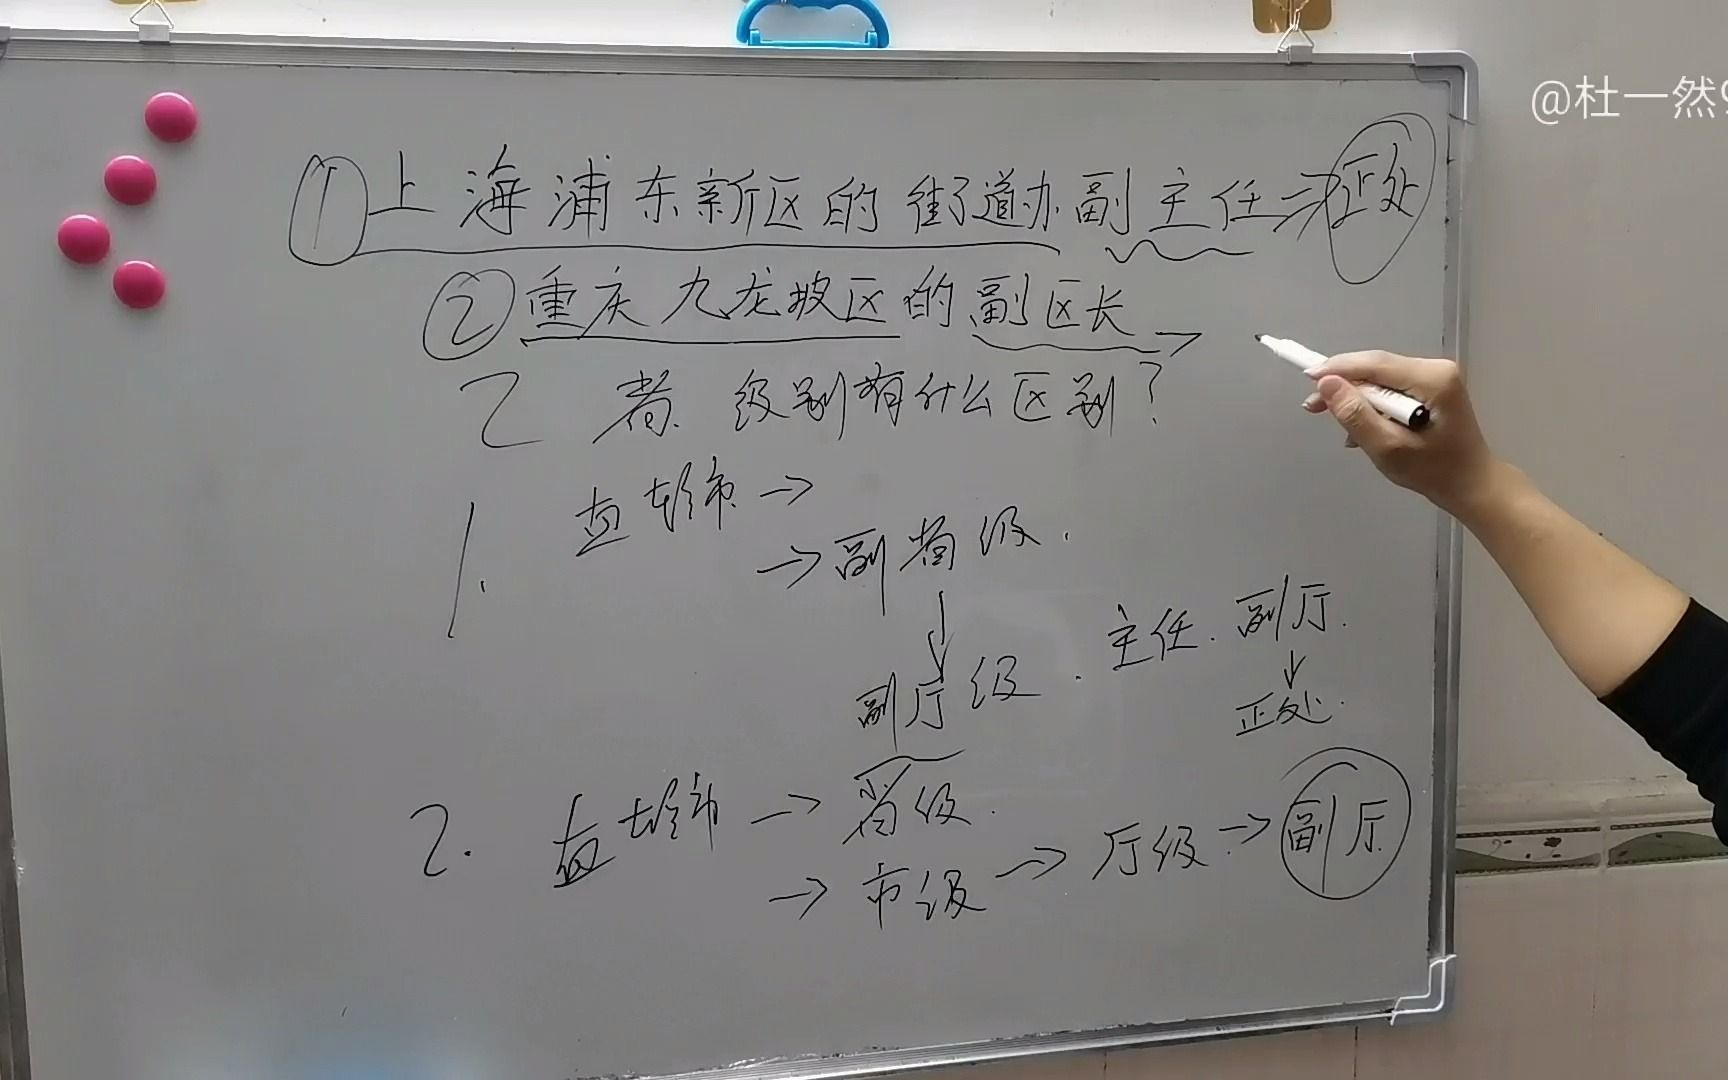 @杜一然9
①上海浦东新区的街道办副主任⇒正处
②重庆九龙坡区的副区长→
2者级别有什么区别?
1. 直辖市→
→副省级.
↓
副厅级. 主任. 副厅.
↓
正处.
2. 直辖市→省级.
→市级→厅级→副厅